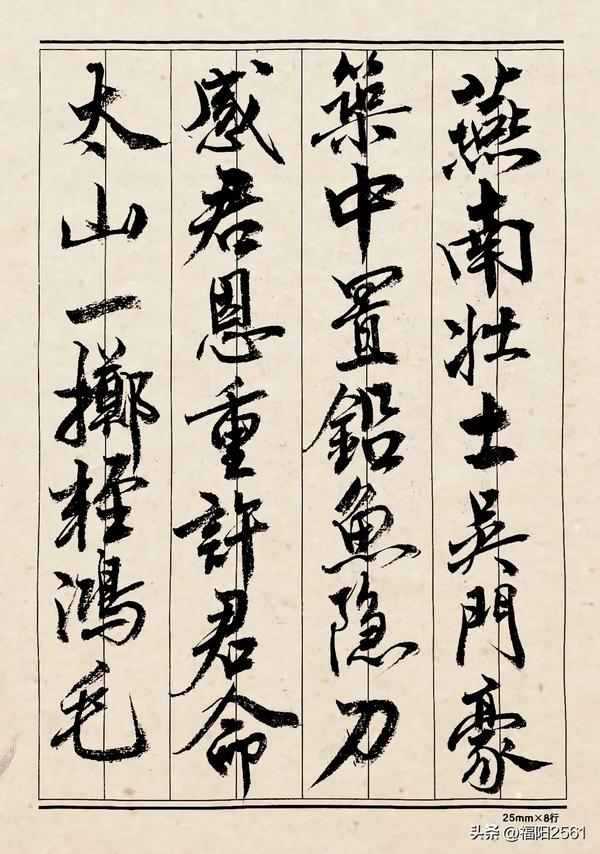 燕南壯士吳門豪
築中置鉛魚隐刀
感君恩重許君命
太山一擲輕鴻毛
25mm×8行
头条 @福阳2561